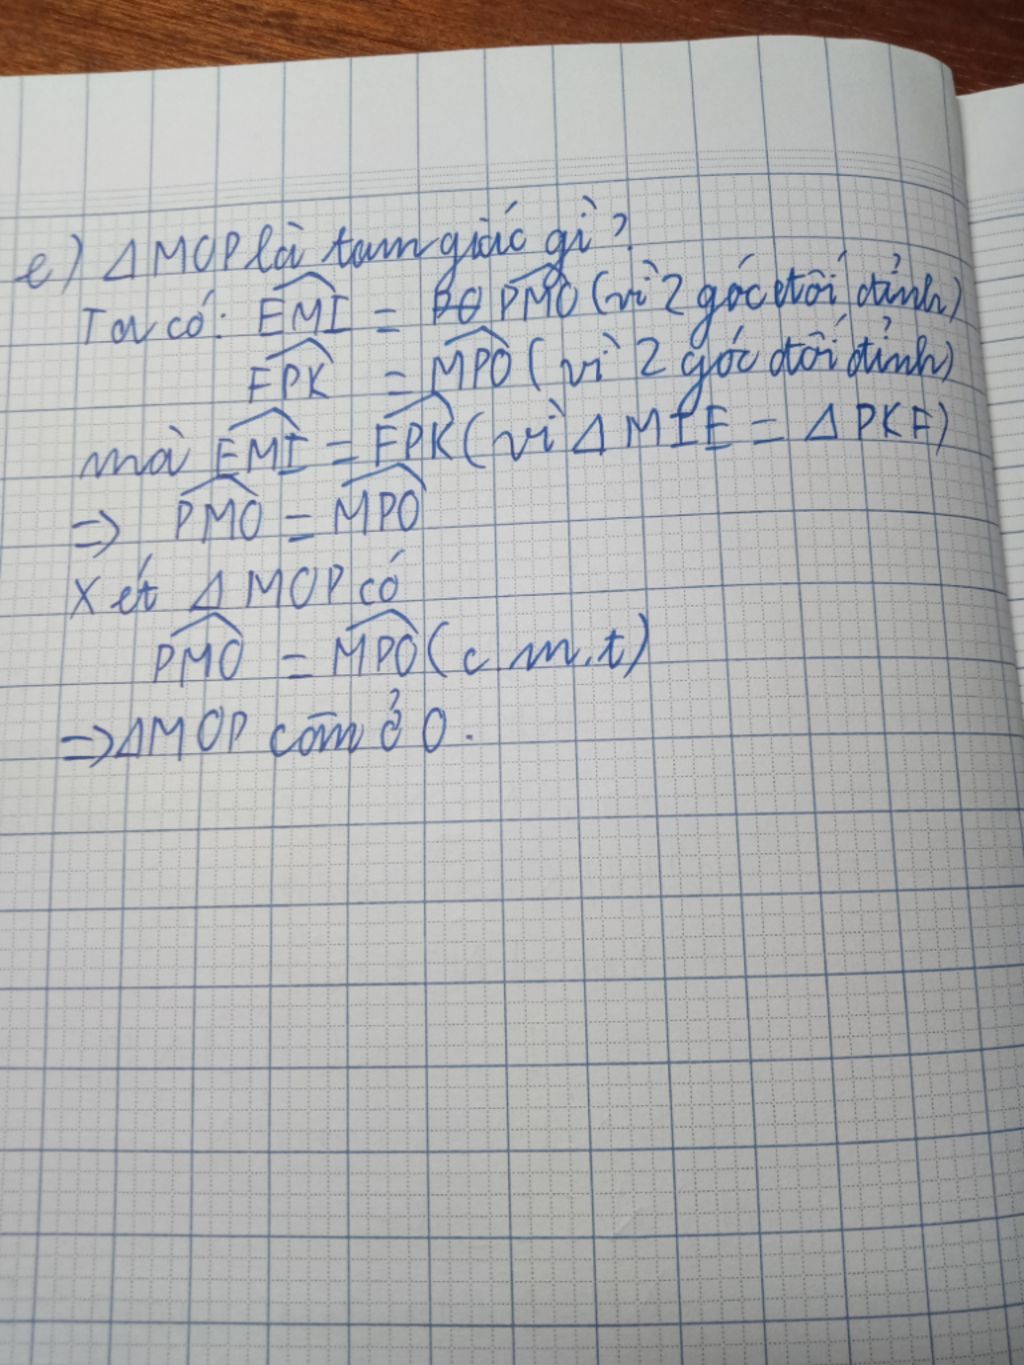 e) ΔMOP là tam giác gì?
Ta có: EMI = PMO (vì 2 góc đối đỉnh)
FPK = MPO (vì 2 góc đối đỉnh)
mà EMI = FPK (vì ΔMIE = ΔPKF)
=> PMO = MPO
Xét ΔMOP có
PMO = MPO (c m.t)
=> ΔMOP cân ở O.